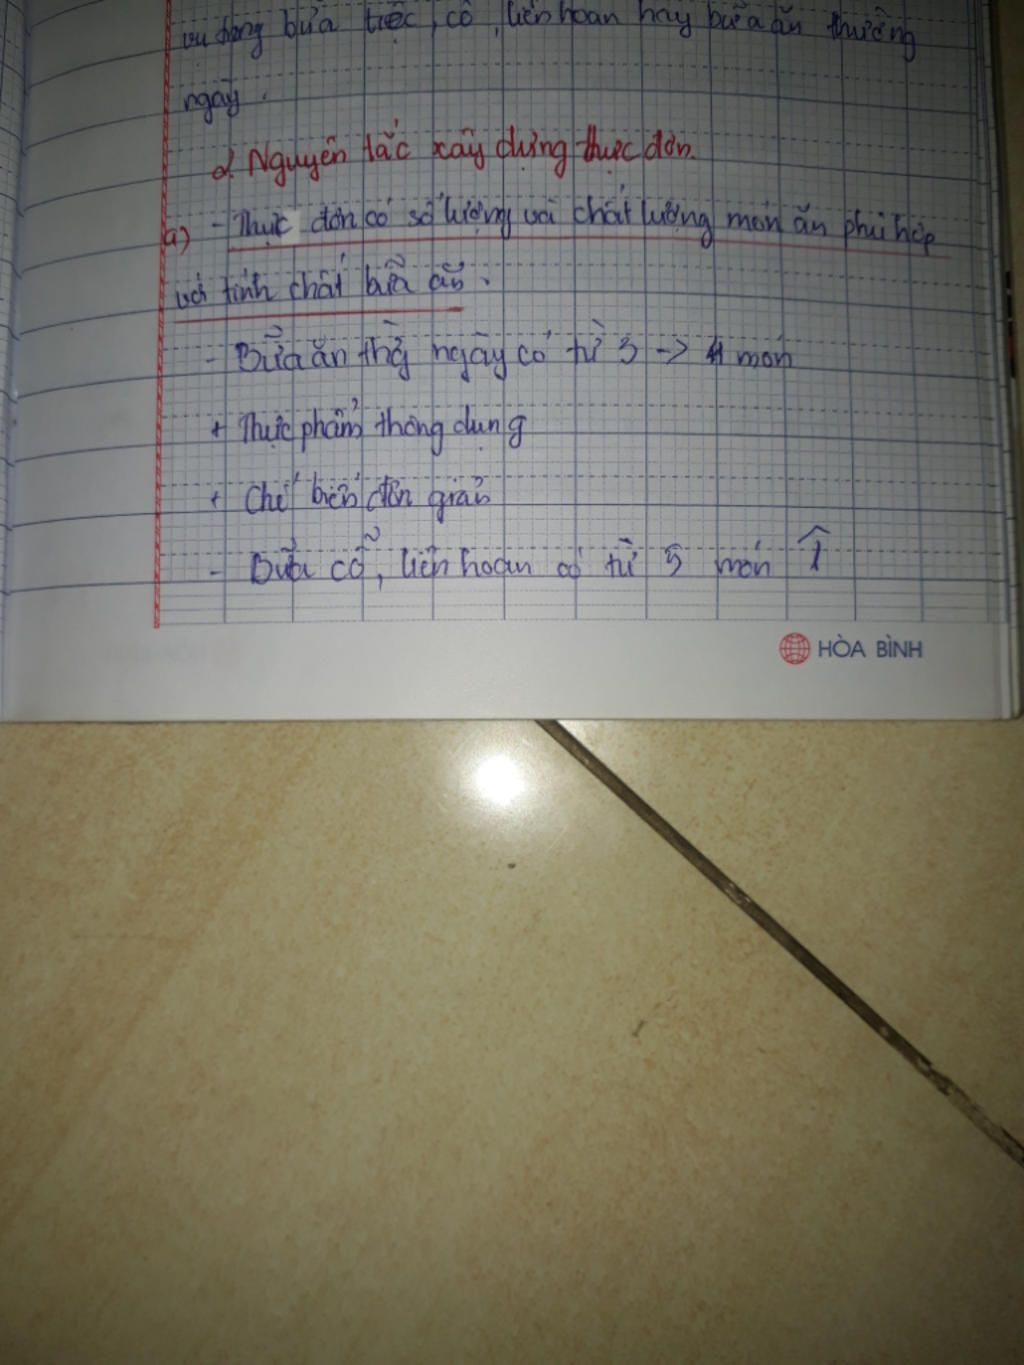 vụ trong bữa tiệc, cỗ, liên hoan hay bữa ăn thường
ngày.
2. Nguyên tắc xây dựng thực đơn.
a) - Thực đơn có số lượng và chất lượng món ăn phù hợp
với tính chất bữa ăn.
- Bữa ăn thg̀ ngày có từ 3 -> 4 món
+ Thực phẩm thông dụng
+ Chế biến đơn giản
- Bữa cỗ, liên hoan có từ 5 món ↑
HÒA BÌNH